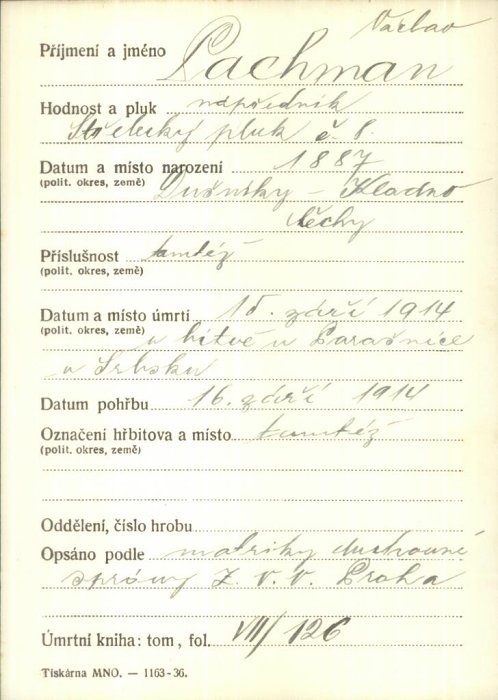 Václav
Příjmení a jméno Pachman
Hodnost a pluk nápředník
Střelecký pluk č. 8.
Datum a místo narození 1887
(polit. okres, země) Dušníky – Kladno
Čechy
Příslušnost tamtéž
(polit. okres, země)
Datum a místo úmrtí 15. září 1914
(polit. okres, země) v bitvě u Parašnice
v Srbsku
Datum pohřbu 16. září 1914
Označení hřbitova a místo tamtéž
(polit. okres, země)
Oddělení, číslo hrobu
Opsáno podle matriky duchovné
správy Z. V. V. Praha
Úmrtní kniha: tom, fol. VIII/126
Tiskárna MNO. — 1163-36.